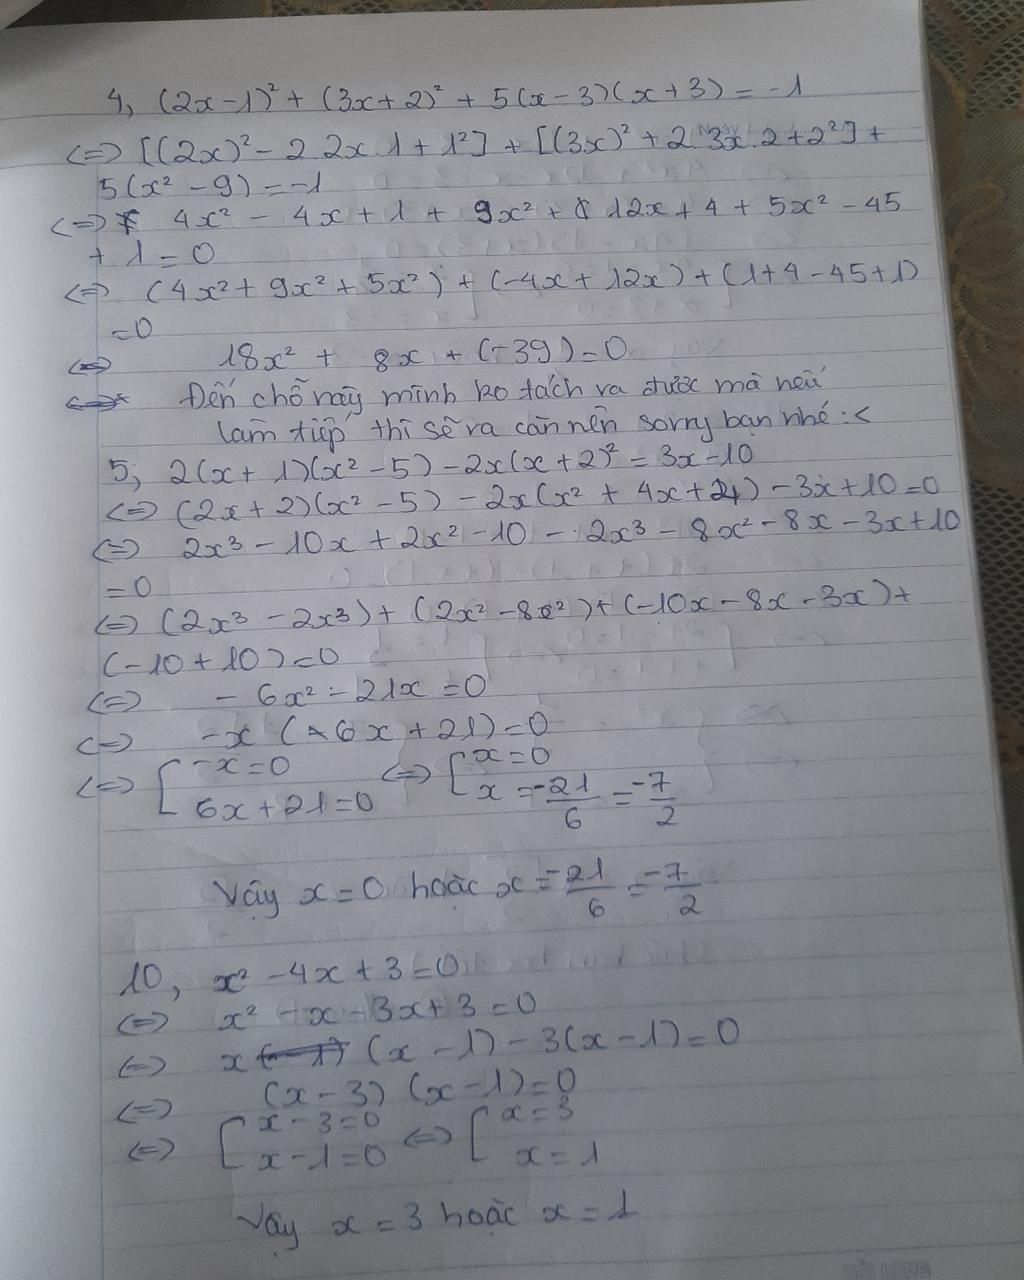 4, (2x-1)² + (3x+2)² + 5(x-3)(x+3) = -1
<=> [(2x)² - 2.2x.1 + 1²] + [(3x)² + 2.3x.2 + 2²] +
5(x² - 9) = -1
<=> 4x² - 4x + 1 + 9x² + 12x + 4 + 5x² - 45
+ 1 = 0
<=> (4x² + 9x² + 5x²) + (-4x + 12x) + (1+4-45+1)
= 0
<=> 18x² + 8x + (-39) = 0
<=> Đến chỗ này mình ko tách ra được mà nếu
làm tiếp thì sẽ ra căn nên sorry bạn nhé :<
5; 2(x+1)(x²-5) - 2x(x+2)² = 3x-10
<=> (2x+2)(x²-5) - 2x(x² + 4x + 4) - 3x + 10 = 0
<=> 2x³ - 10x + 2x² - 10 - 2x³ - 8x² - 8x - 3x + 10
= 0
<=> (2x³ - 2x³) + (2x² - 8x²) + (-10x - 8x - 3x) +
(-10 + 10) = 0
<=> - 6x² - 21x = 0
<=> -x (6x + 21) = 0
<=> [ -x = 0 <=> [ x = 0
6x + 21 = 0 x = -21/6 = -7/2
Vậy x = 0 hoặc x = -21/6 = -7/2
10, x² - 4x + 3 = 0
<=> x² - x - 3x + 3 = 0
<=> x (x - 1) - 3(x - 1) = 0
<=> (x - 3) (x - 1) = 0
<=> [ x - 3 = 0 <=> [ x = 3
x - 1 = 0 x = 1
Vậy x = 3 hoặc x = 1